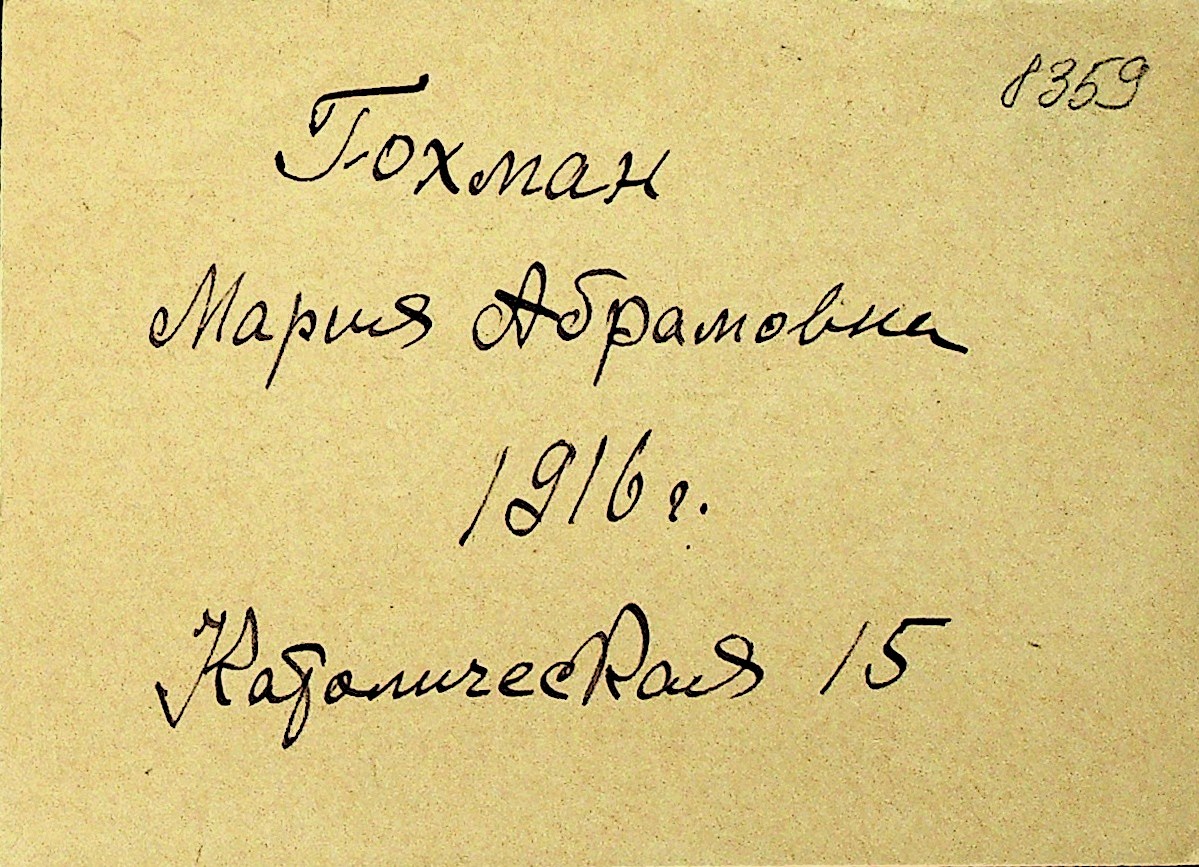 8359
Гохман
Мария Абрамовна
1916 г.
Католическая 15